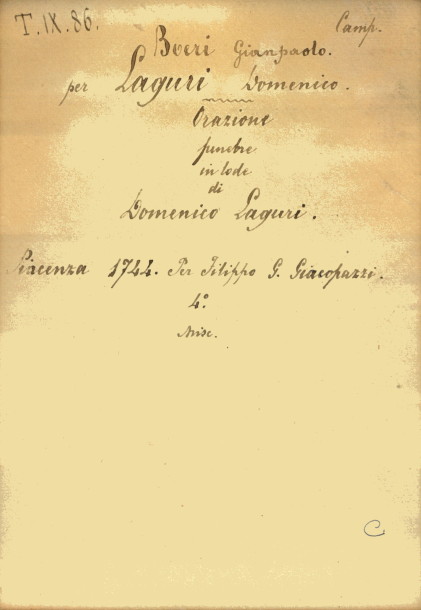 T. IX. 86.
Camp.
Boeri Gianpaolo.
per Laguri Domenico.
Orazione
funebre
in lode
di
Domenico Laguri.
Piacenza 1744. Per Filippo G. Giacopazzi.
4º
Misc.
C